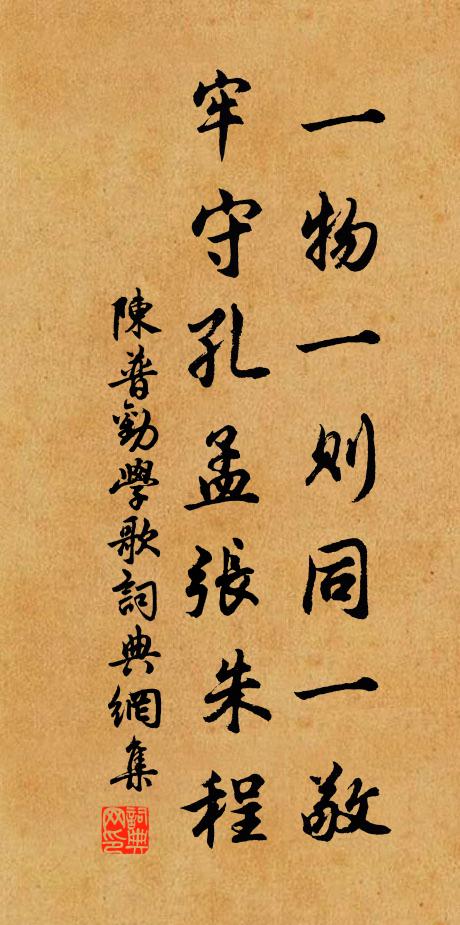 一物一则同一敬
牢守孔孟張朱程
陳普勸學歌詞典網集
詞典网印